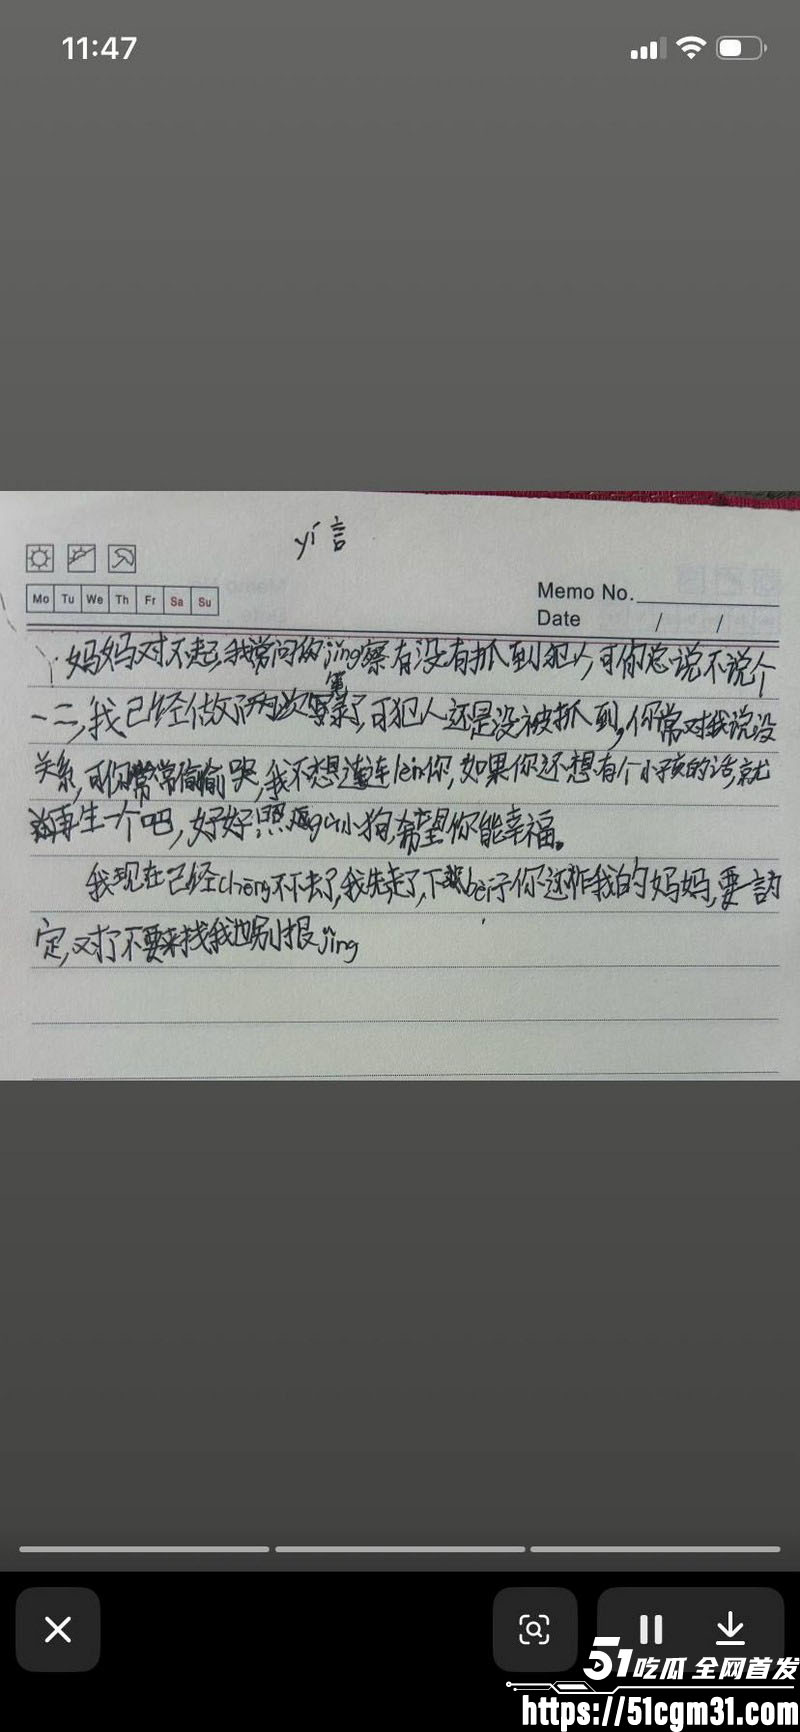 11:47
yí言
Mo Tu We Th Fr Sa Su
Memo No.
Date / /
妈妈对不起,我常问你jing察有没有抓到犯人,可你总说不说个
一二,我已经做了两次笔录了,可犯人还是没被抓到,你常对我说没
关系,可你常常偷偷哭,我不想连lei你,如果你还想有个小孩的话,就
再生一个吧,好好照顾小狗,希望你能幸福。
我现在已经cheng不下去了,我先走了,下bei子你还作我的妈妈,要说
定,对了不要来找我也别报jing
51吃瓜 全网首发
https://51cgm31.com